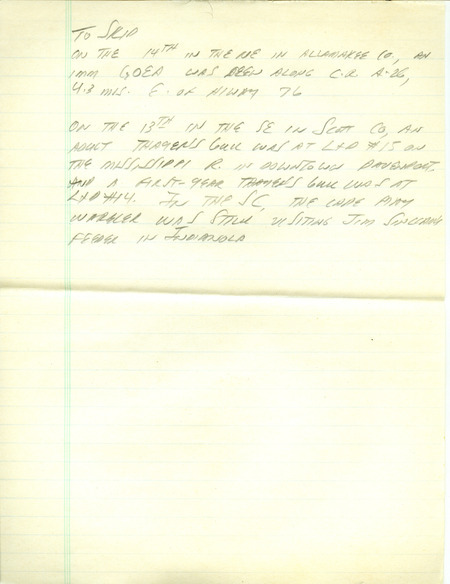 TO SKIP
ON THE 14TH IN THE NE IN ALLAMAKEE CO, AN
IMM GOEA WAS SEEN ALONG C.R. A-26,
4.3 MLS. E. OF HIWAY 76
ON THE 13TH IN THE SE IN SCOT CO, AN
ADULT THAYER'S GULL WAS AT L+D #15 ON
THE MISSISSIPPI R. IN DOWNTOWN DAVENPORT.
AND A FIRST-YEAR THAYER'S GULL WAS AT
L+D #14. IN THE SC, THE CAPE MAY
WARBLER WAS STILL VISITING JIM
FEEDER IN INDIANOLA